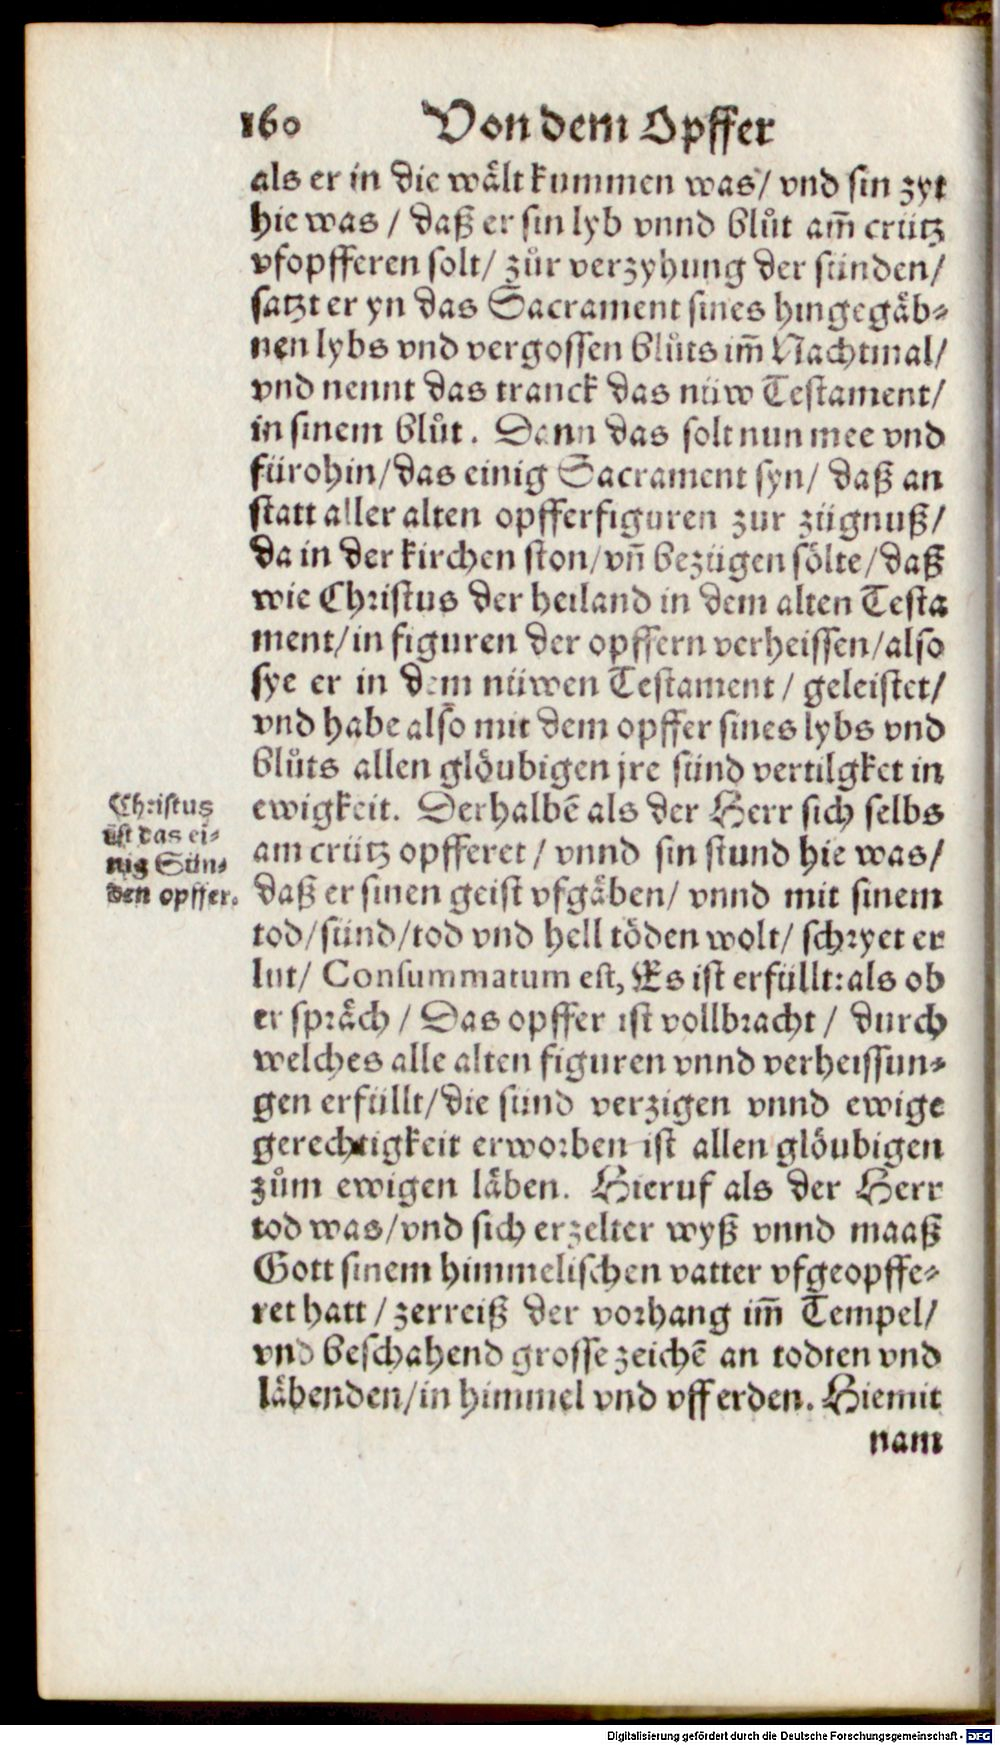 160 Von dem Opffer
als er in die wält kummen was/ vnd sin zyt
hie was / daß er sin lyb vnnd blůt am̄ crütz
vfopfferen solt/ zůr verzyhung der sünden/
satzt er yn das Sacrament sines hingegäb⸗
nen lybs vnd vergossen blůts im̄ Nachtmal/
vnd nennt das tranck das nüw Testament/
in sinem blůt. Dann das solt nun mee vnd
fürohin/das einig Sacrament syn/ daß an
statt aller alten opfferfiguren zur zügnuß/
da in der kirchen ston/vn̄ bezügen sölte/daß
wie Christus der heiland in dem alten Testa
ment/in figuren der opffern verheissen/also
sye er in dem nüwen Testament / geleistet/
vnd habe also mit dem opffer sines lybs vnd
blůts allen glöubigen jre sünd vertilgket in
ewigkeit. Derhalbē als der Herr sich selbs
am crütz opfferet / vnnd sin stund hie was/
daß er sinen geist vfgäben/ vnnd mit sinem
tod/sünd/tod vnd hell töden wolt/ schryet er
lut/ Consummatum est, Es ist erfüllt:als ob
er spräch / Das opffer ist vollbracht / durch
welches alle alten figuren vnnd verheissun⸗
gen erfüllt/die sünd verzigen vnnd ewige
gerechtigkeit erworben ist allen glöubigen
zům ewigen läben. Hieruf als der Herr
tod was/vnd sich erzelter wyß vnnd maaß
Gott sinem himmelischen vatter vfgeopffe⸗
ret hatt / zerreiß der vorhang im̄ Tempel/
vnd beschahend grosse zeichē an todten vnd
läbenden/in himmel vnd vff erden. Hiemit
nam
Christus
ist das ei⸗
nig Sün⸗
den opffer.
Digitalisierung gefördert durch die Deutsche Forschungsgemeinschaft - DFG